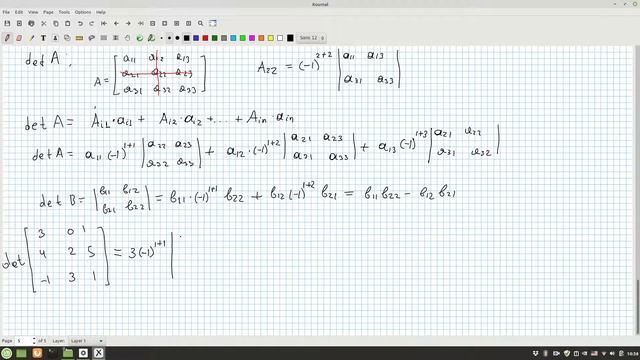 Xournal
Sans 12
det A :
A = [ a11 a12 a13
a21 a22 a23
a31 a32 a33 ]
A22 = (-1)^2+2 | a11 a13
a31 a33 |
det A = Ai1 · ai1 + Ai2 · ai2 + ... + Ain · ain
det A = a11 (-1)^1+1 | a22 a23
a32 a33 | + a12 · (-1)^1+2 | a21 a23
a31 a33 | + a13 (-1)^1+3 | a21 a22
a31 a32 |
det B = | b11 b12
b21 b22 | = b11 · (-1)^1+1 b22 + b12 (-1)^1+2 b21 = b11 b22 - b12 b21
det [ 3 0 1
4 2 5
-1 3 1 ] = 3 (-1)^1+1 |
Page 5 of 5 Layer: Layer 1
16:38